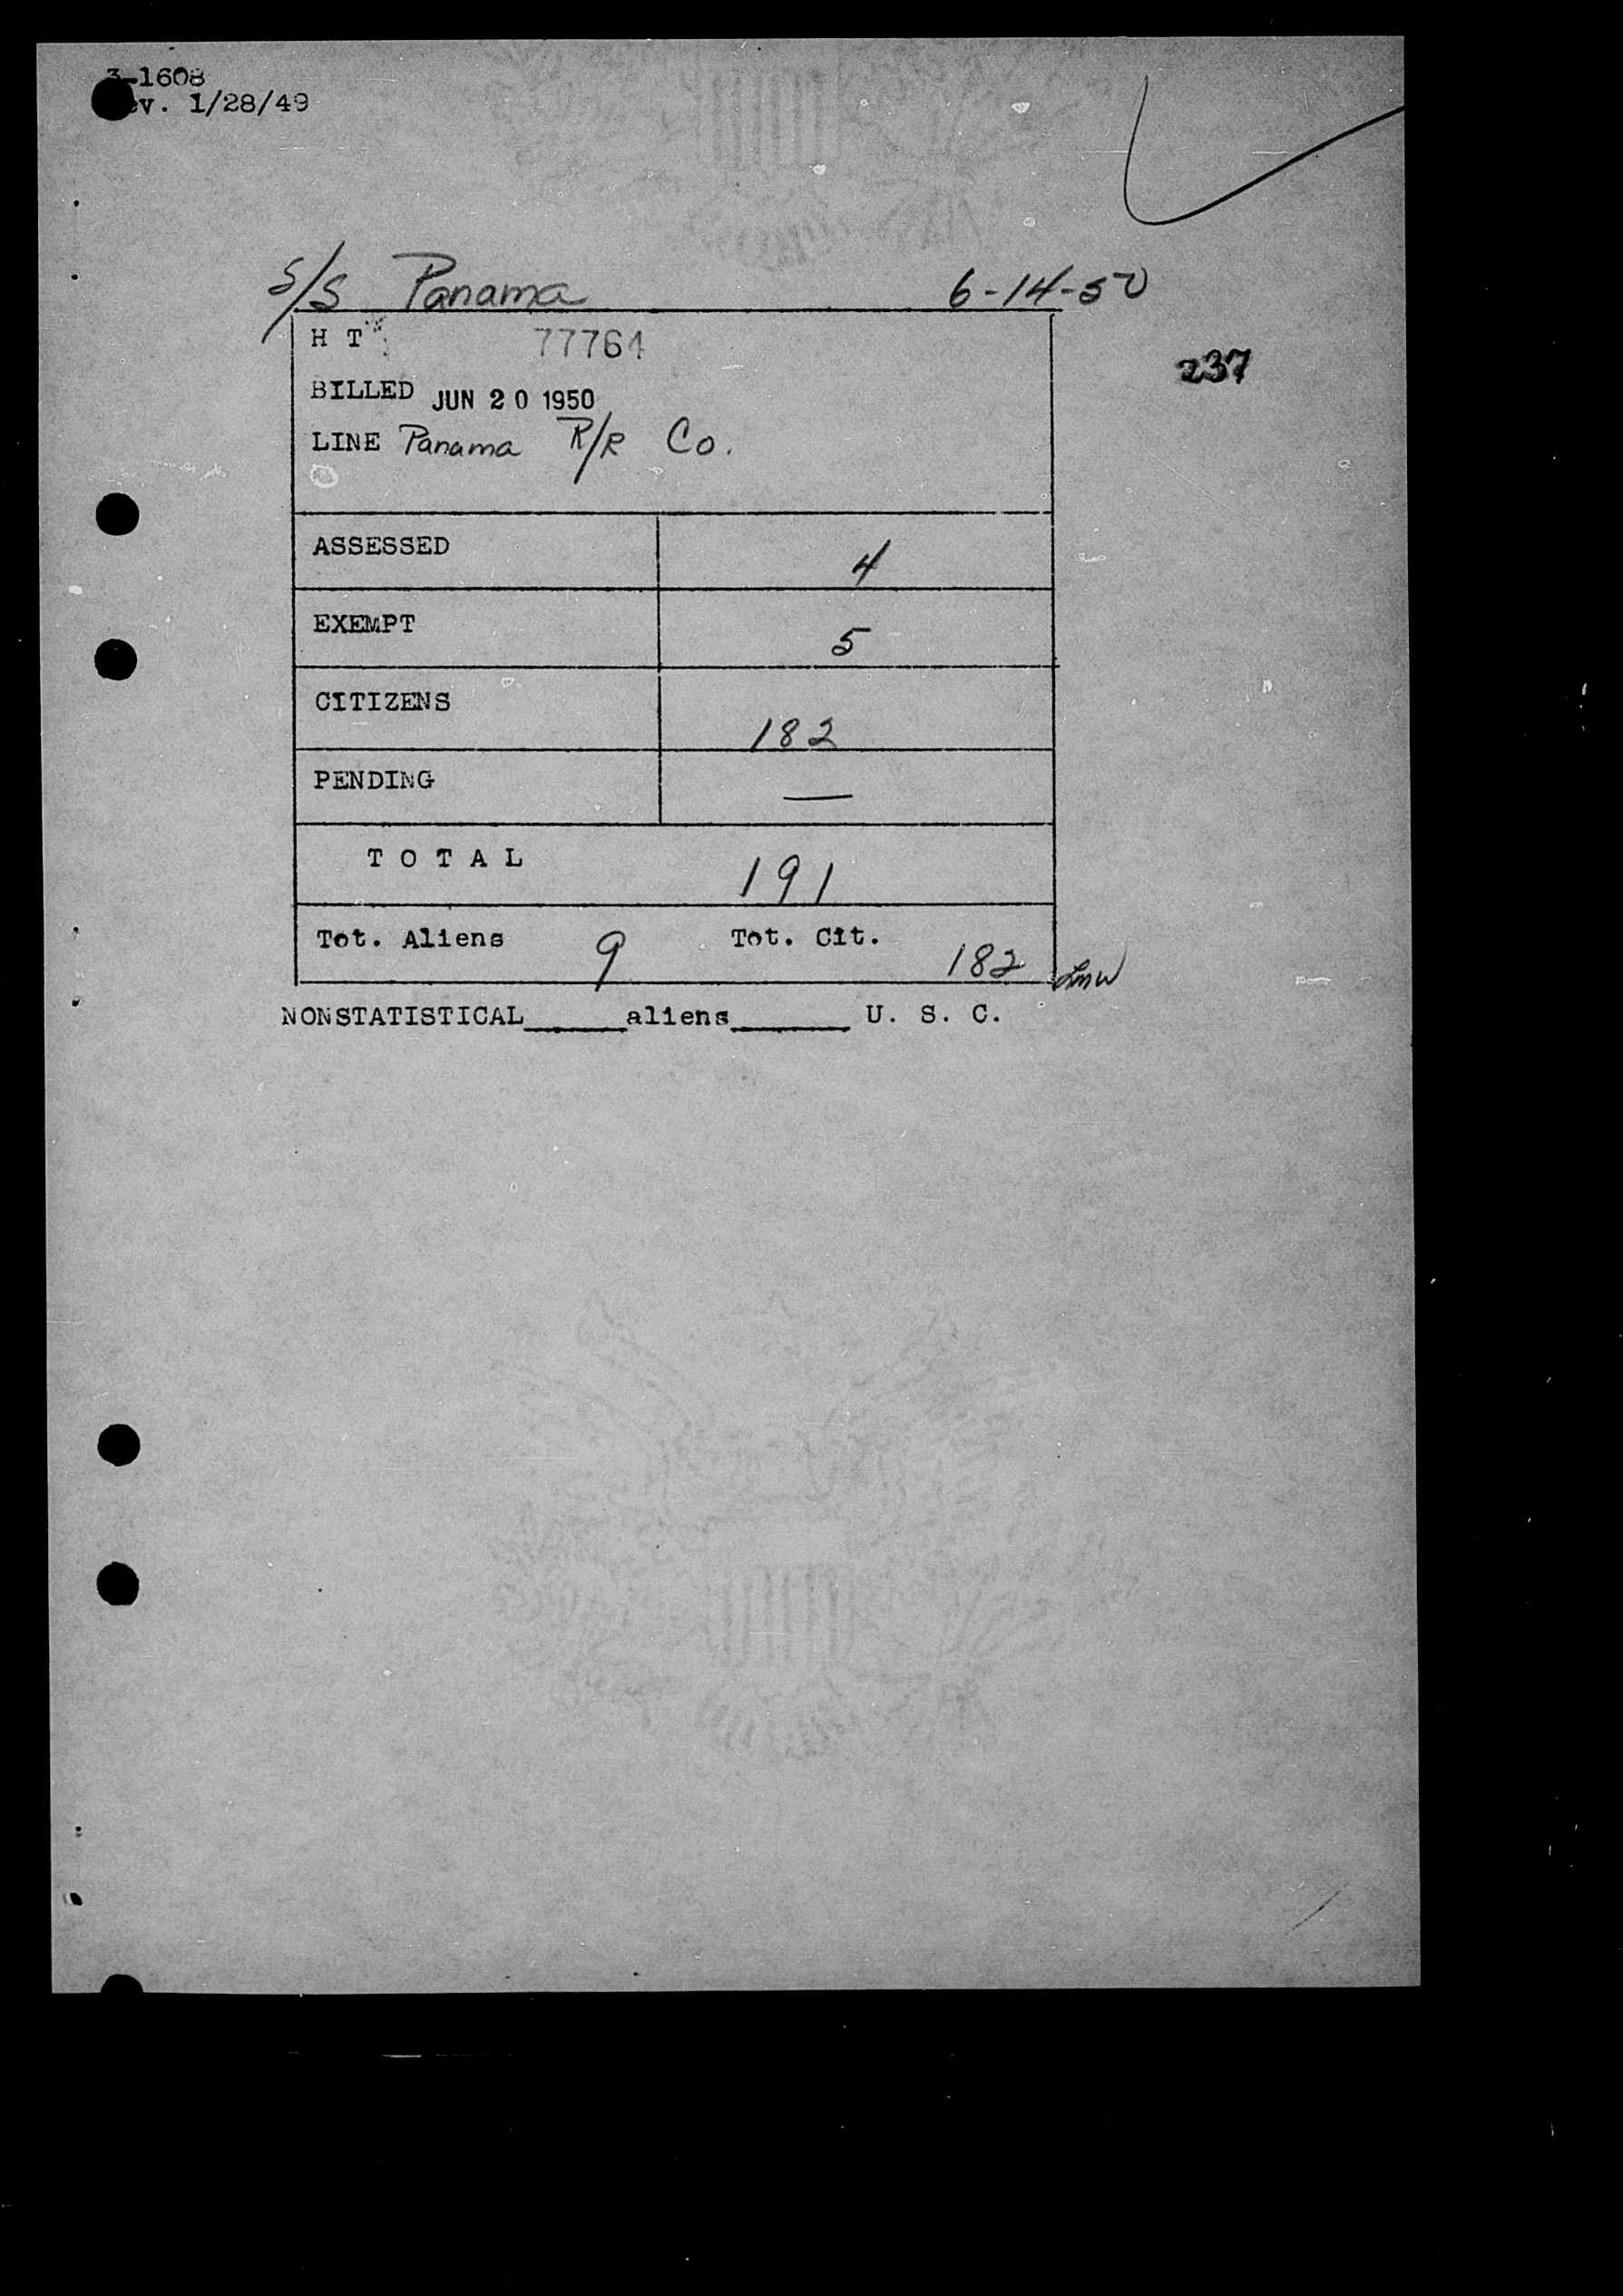 3-1608
ev. 1/28/49
S/S Panama 6-14-50
H T 77764
237
BILLED JUN 20 1950
LINE Panama R/R Co.
ASSESSED 4
EXEMPT 5
CITIZENS 182
PENDING —
T O T A L 191
Tot. Aliens 9 Tot. Cit. 182 Lmw
NONSTATISTICAL______aliens_______ U. S. C.